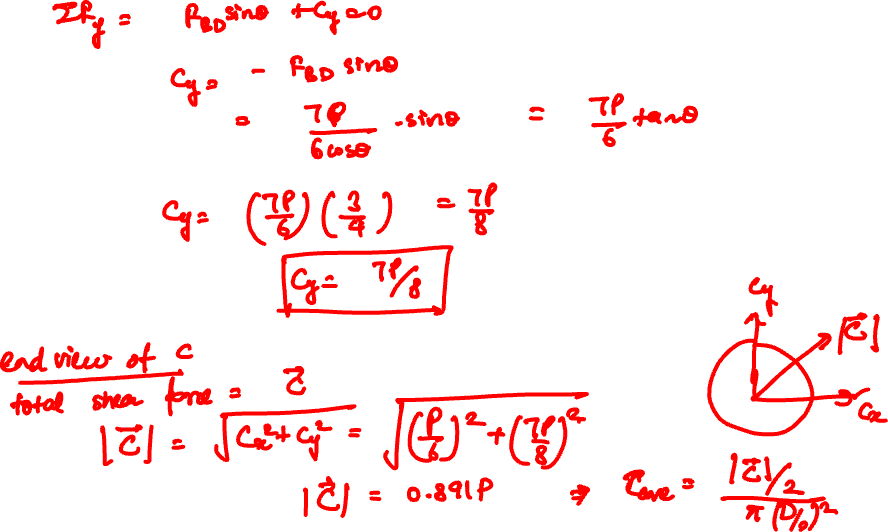 ΣF_y = F_BD sinθ + C_y = 0
C_y = - F_BD sinθ
= 7P/6cosθ · sinθ = 7P/6 tanθ
C_y = (7P/6)(3/4) = 7P/8
C_y = 7P/8
end view of C
total shear force = C⃗
|C⃗| = √(C_x² + C_y²) = √((P/6)² + (7P/8)²)
|C⃗| = 0.891P ⇒ τ_ave = (|C⃗|/2)/(π(D/2)²)
C_y
|C⃗|
C_x